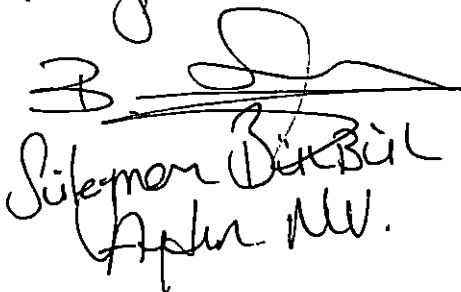 Süleyman BÜLBÜL
Aydın MV.